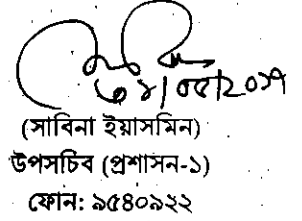 (সাবিনা ইয়াসমিন)
উপসচিব (প্রশাসন-১)
ফোন: ৯৫৪০৯২২